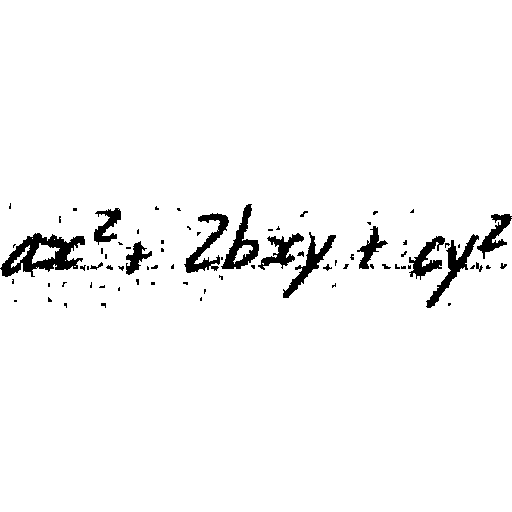 ax² + 2bxy + cy²